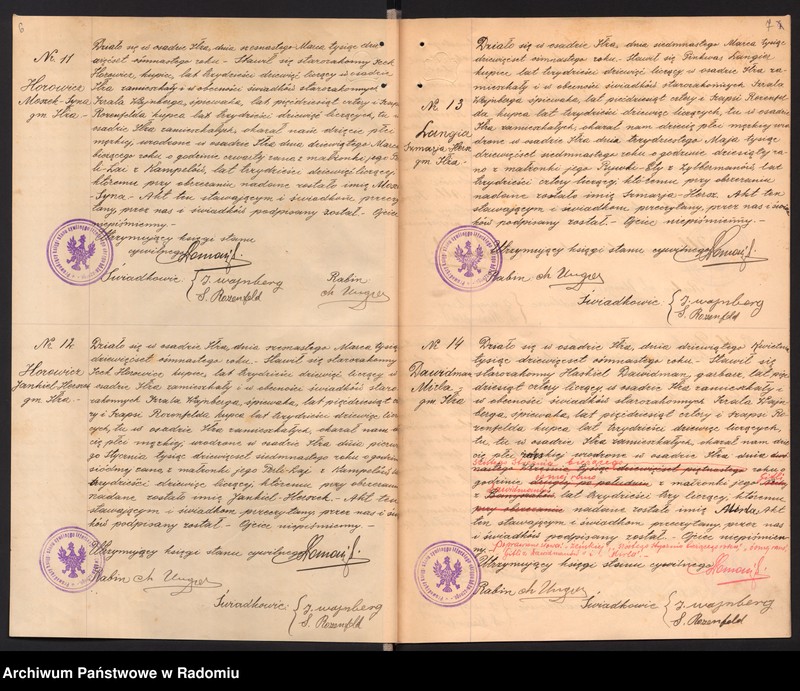 6
Nr 11
Horowicz
Moszk-Syna
gm. Iłża -
Działo się w osadzie Iłża, dnia szesnastego Marca tysiąc dzie-
więćset ósmnastego roku. - Stawił się starozakonny Icek
Horowicz, kupiec, lat trzydzieści dziewięć liczący w osadzie
Iłża zamieszkały i w obecności świadków starozakonnych
Izrala Wajnberga, śpiewaka, lat pięćdziesiąt cztery i Szapsi
Rozenfelda kupca lat trzydzieści dziewięć liczących, tu w
osadzie Iłża zamieszkałych, okazał nam dziecię płci
męzkiej, urodzone w osadzie Iłża dnia dziewiątego Marca
bieżącego roku o godzinie czwartej rano z małżonki jego
z Kampelów, lat trzydzieści dziewięć liczącej,
któremu przy obrzezaniu nadane zostało imię
Syna. - Akt ten stawającym i świadkom przeczy-
tany, przez nas i świadków podpisany został. - Ojciec
niepiśmienny. -
Utrzymujący księgi stanu
cywilnego
Świadkowie { J. wajnberg
S. Rozenfeld
Rabin
Ch Unger
Nr 12
Horowicz
Jankiel Herszek
gm. Iłża -
Działo się w osadzie Iłża, dnia szesnastego Marca tysiąc
dziewięćset ósmnastego roku. - Stawił się starozakonny
Icek Horowicz kupiec, lat trzydzieści dziewięć liczący w
osadzie Iłża zamieszkały i w obecności świadków staro-
zakonnych Izrala Wajnberga, śpiewaka, lat pięćdziesiąt
cztery i Szapsi Rozenfelda kupca lat trzydzieści dziewięć
liczących, tu w osadzie Iłża zamieszkałych, okazał nam
dziecię płci męzkiej, urodzone w osadzie Iłża dnia pierw-
szego Stycznia tysiąc dziewięćset siedmnastego roku o godzinie
siódmej rano z małżonki jego z Kampelów lat
trzydzieści dziewięć liczącej, któremu przy obrzezaniu
nadane zostało imię Jankiel Herszek. - Akt ten
stawającym i świadkom przeczytany, przez nas i świad-
ków podpisany został. - Ojciec niepiśmienny. -
Utrzymujący księgi stanu cywilnego
Rabin Ch Unger
Świadkowie { J. wajnberg
S. Rozenfeld
7
Nr 13
Langia
Szmarja Hersz
gm. Iłża. -
Działo się w osadzie Iłża, dnia siedmnastego Marca tysiąc
dziewięćset ósmnastego roku. - Stawił się Pinkwas Langier
kupiec lat trzydzieści dziewięć liczący, w osadzie Iłża za-
mieszkały i w obecności świadków starozakonnych Izrala
Wajnberga, śpiewaka, lat pięćdziesiąt cztery i Szapsi Rozenfel-
da kupca lat trzydzieści dziewięć liczących, tu w osadzie
Iłża zamieszkałych, okazał nam dziecię płci męzkiej uro-
dzone w osadzie Iłża dnia trzydziestego Maja tysiąc
dziewięćset siedmnastego roku o godzinie dziesiątej ra-
no z małżonki jego Rywki-Ety z Zylbermanów, lat
trzydzieści cztery liczącej, któremu, przy obrzezaniu
nadane zostało imię Szmarja-Hersz. Akt ten
stawającym i świadkom przeczytany, przez nas i świad-
ków podpisany został. - Ojciec niepiśmienny. -
Utrzymujący księgi stanu cywilnego
Rabin Ch Unger
Świadkowie { J. wajnberg
S. Rozenfeld
Nr 14
Dawidman
Mirla,
gm Iłża
Działo się w osadzie Iłża, dnia dziewiątego Kwietnia
tysiąc dziewięćset ósmnastego roku. - Stawił się
starozakonny Haskiel Dawidman, garbarz, lat pięć-
dziesiąt cztery liczący, w osadzie Iłża zamieszkały i
w obecności świadków starozakonnych Izrala Wajn-
berga, śpiewaka, lat pięćdziesiąt cztery i Szapsi Ro-
zenfelda kupca lat trzydzieści dziewięć liczących,
tu, w osadzie Iłża zamieszkałych, okazał nam dzie-
cię płci urodzone w osadzie Iłża dnia
Stycznia bieżącego
roku, o
godzinie z małżonki jego
Dawidmanów
lat trzydzieści trzy liczącej, któremu
przy obrzezaniu nadane zostało imię Mirla, Akt
ten stawającym i świadkom przeczytany, przez nas
i świadków podpisany został. - Ojciec niepiśmien-
ny. -
Utrzymujący księgi stanu cywilnego
Rabin Ch Unger
Świadkowie { J. wajnberg
S. Rozenfeld
Archiwum Państwowe w Radomiu